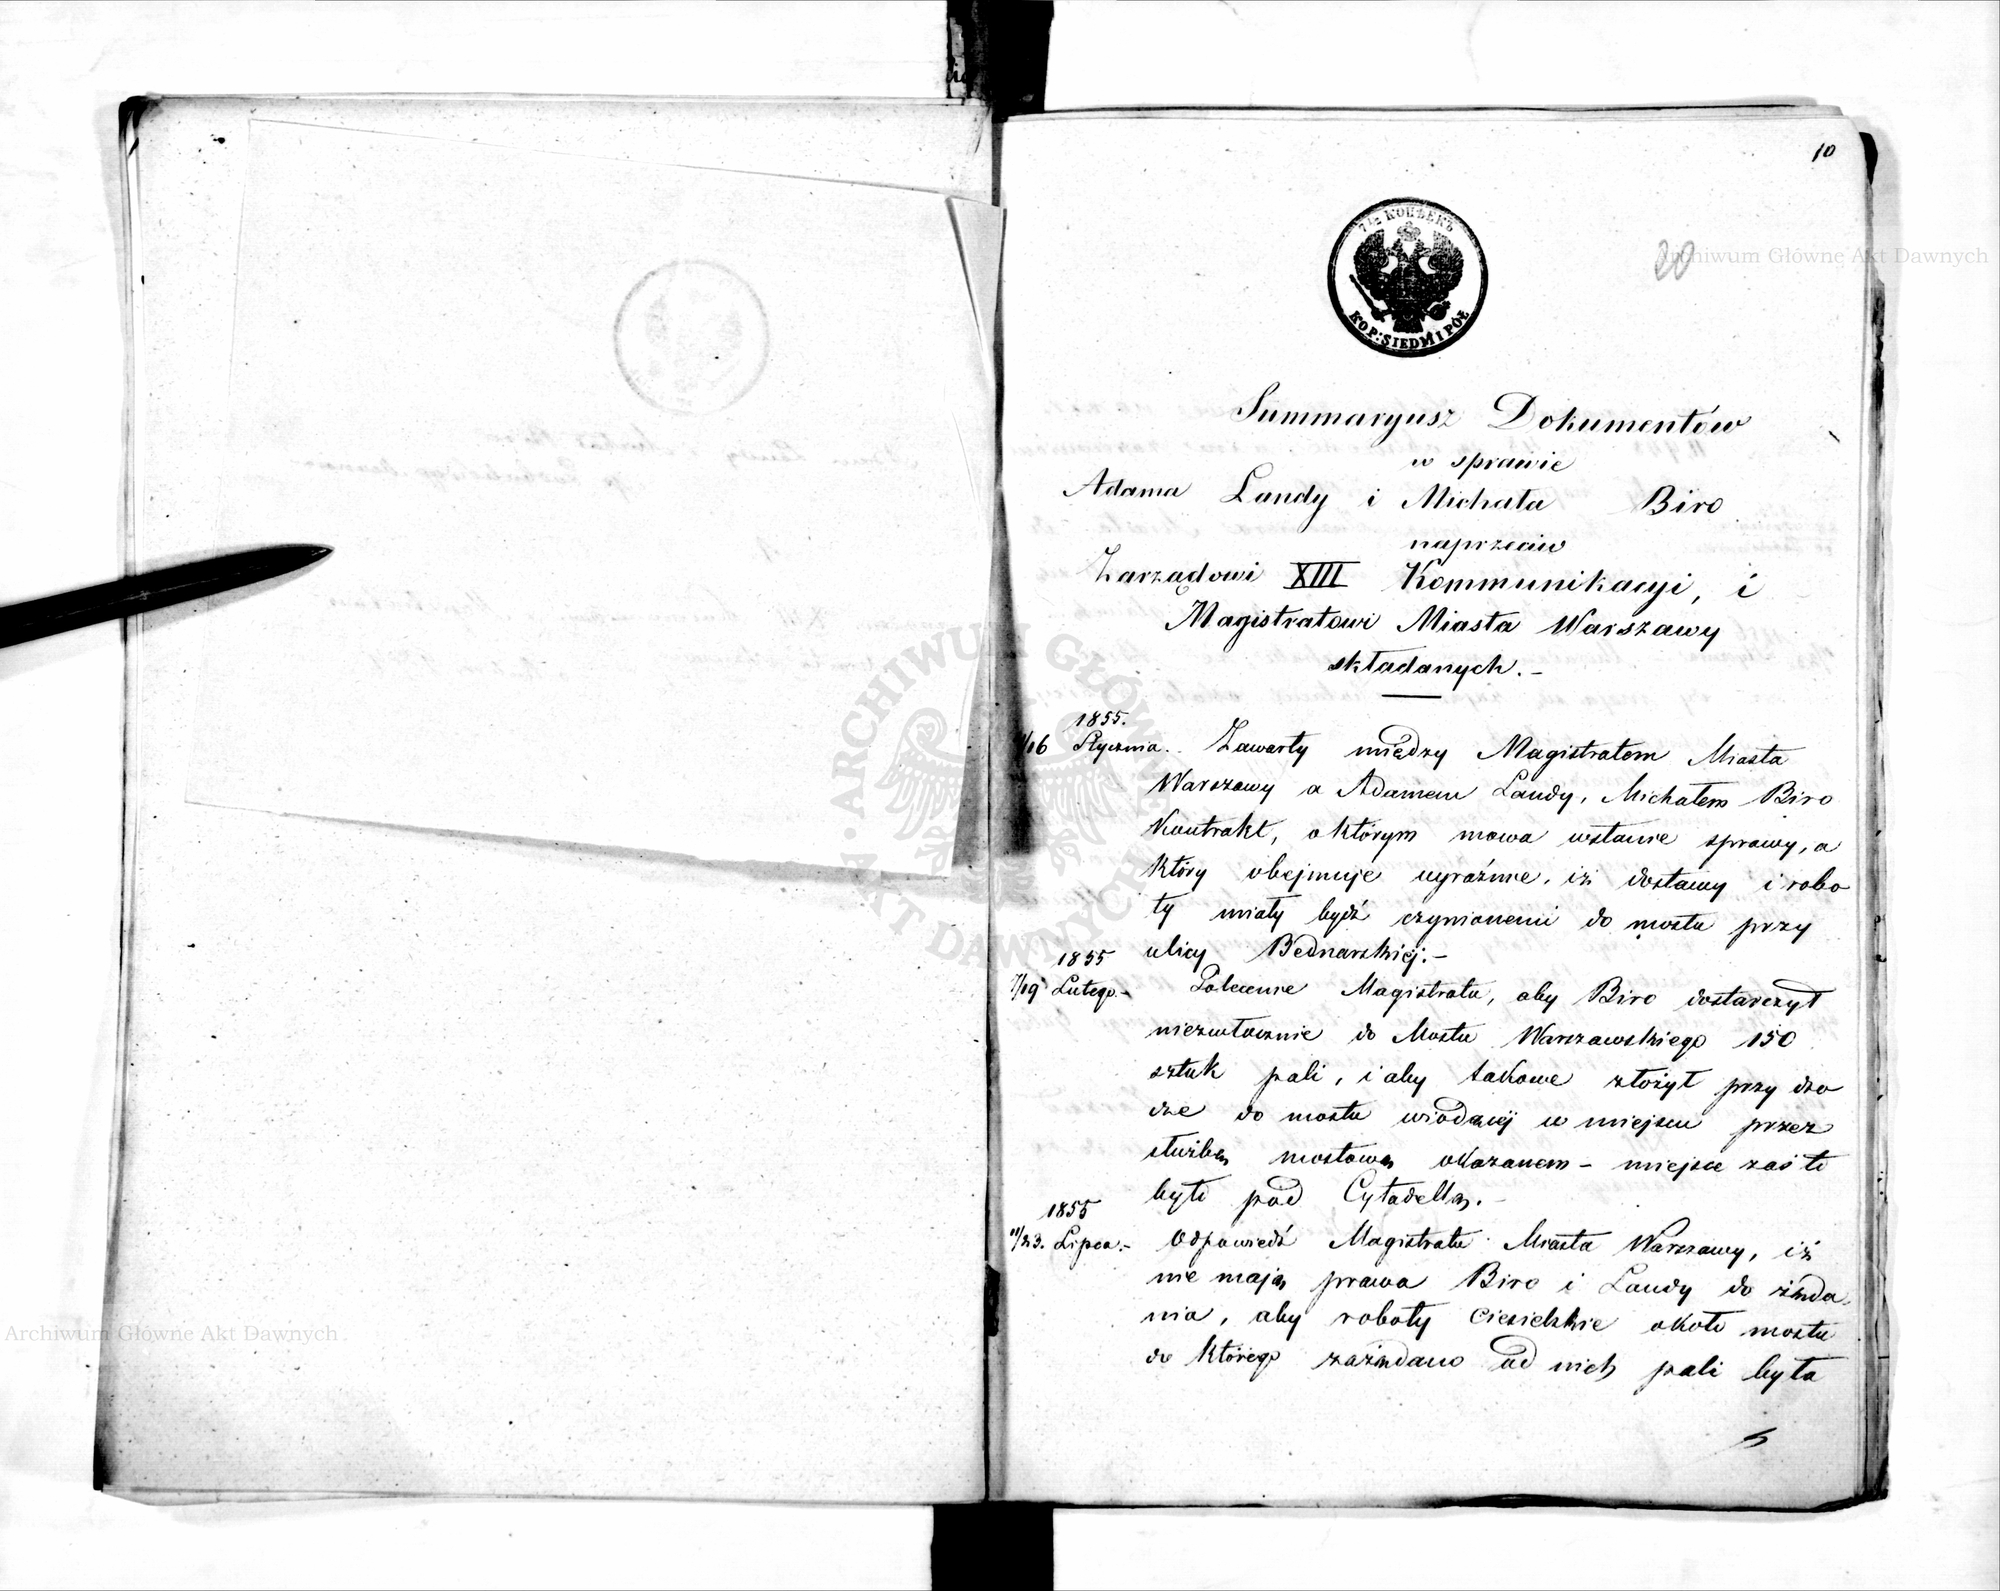 10
7½ КОПѢЕКЪ
KOP: SIEDM I PÓŁ
20
Summaryusz Dokumentów
w sprawie
Adama Landy i Michała Biro
naprzeciw
Zarządowi XIII Kommunikacyi, i
Magistratowi Miasta Warszawy
składanych.-
1855.
/16 Stycznia.- Zawarty między Magistratem Miasta
Warszawy a Adamem Landy, Michałem Biro
Kontrakt, o którym mowa w stanie sprawy, a
który obejmuje wyraźnie, iż dostawy i robo
ty miały bydź czynionemi do mostu przy
ulicy Bednarskiej.-
1855
7/19 Lutego.- Polecenie Magistratu, aby Biro dostarczył
niezwłocznie do Mostu Warszawskiego 150
sztuk pali, i aby takowe złożył przy dro
dze do mostu wiodącej w miejscu przez
służbę mostową okazanem – miejsce zaś to
było pod Cytadellą.-
1855
11/23. Lipca.- Odpowiedź Magistratu Miasta Warszawy, iż
nie mają prawa Biro i Landy do żąda
nia, aby roboty ciesielskie około mostu
do którego zażądano od nich pali była
ARCHIWUM GŁÓWNE AKT DAWNYCH
Archiwum Główne Akt Dawnych
Archiwum Główne Akt Dawnych